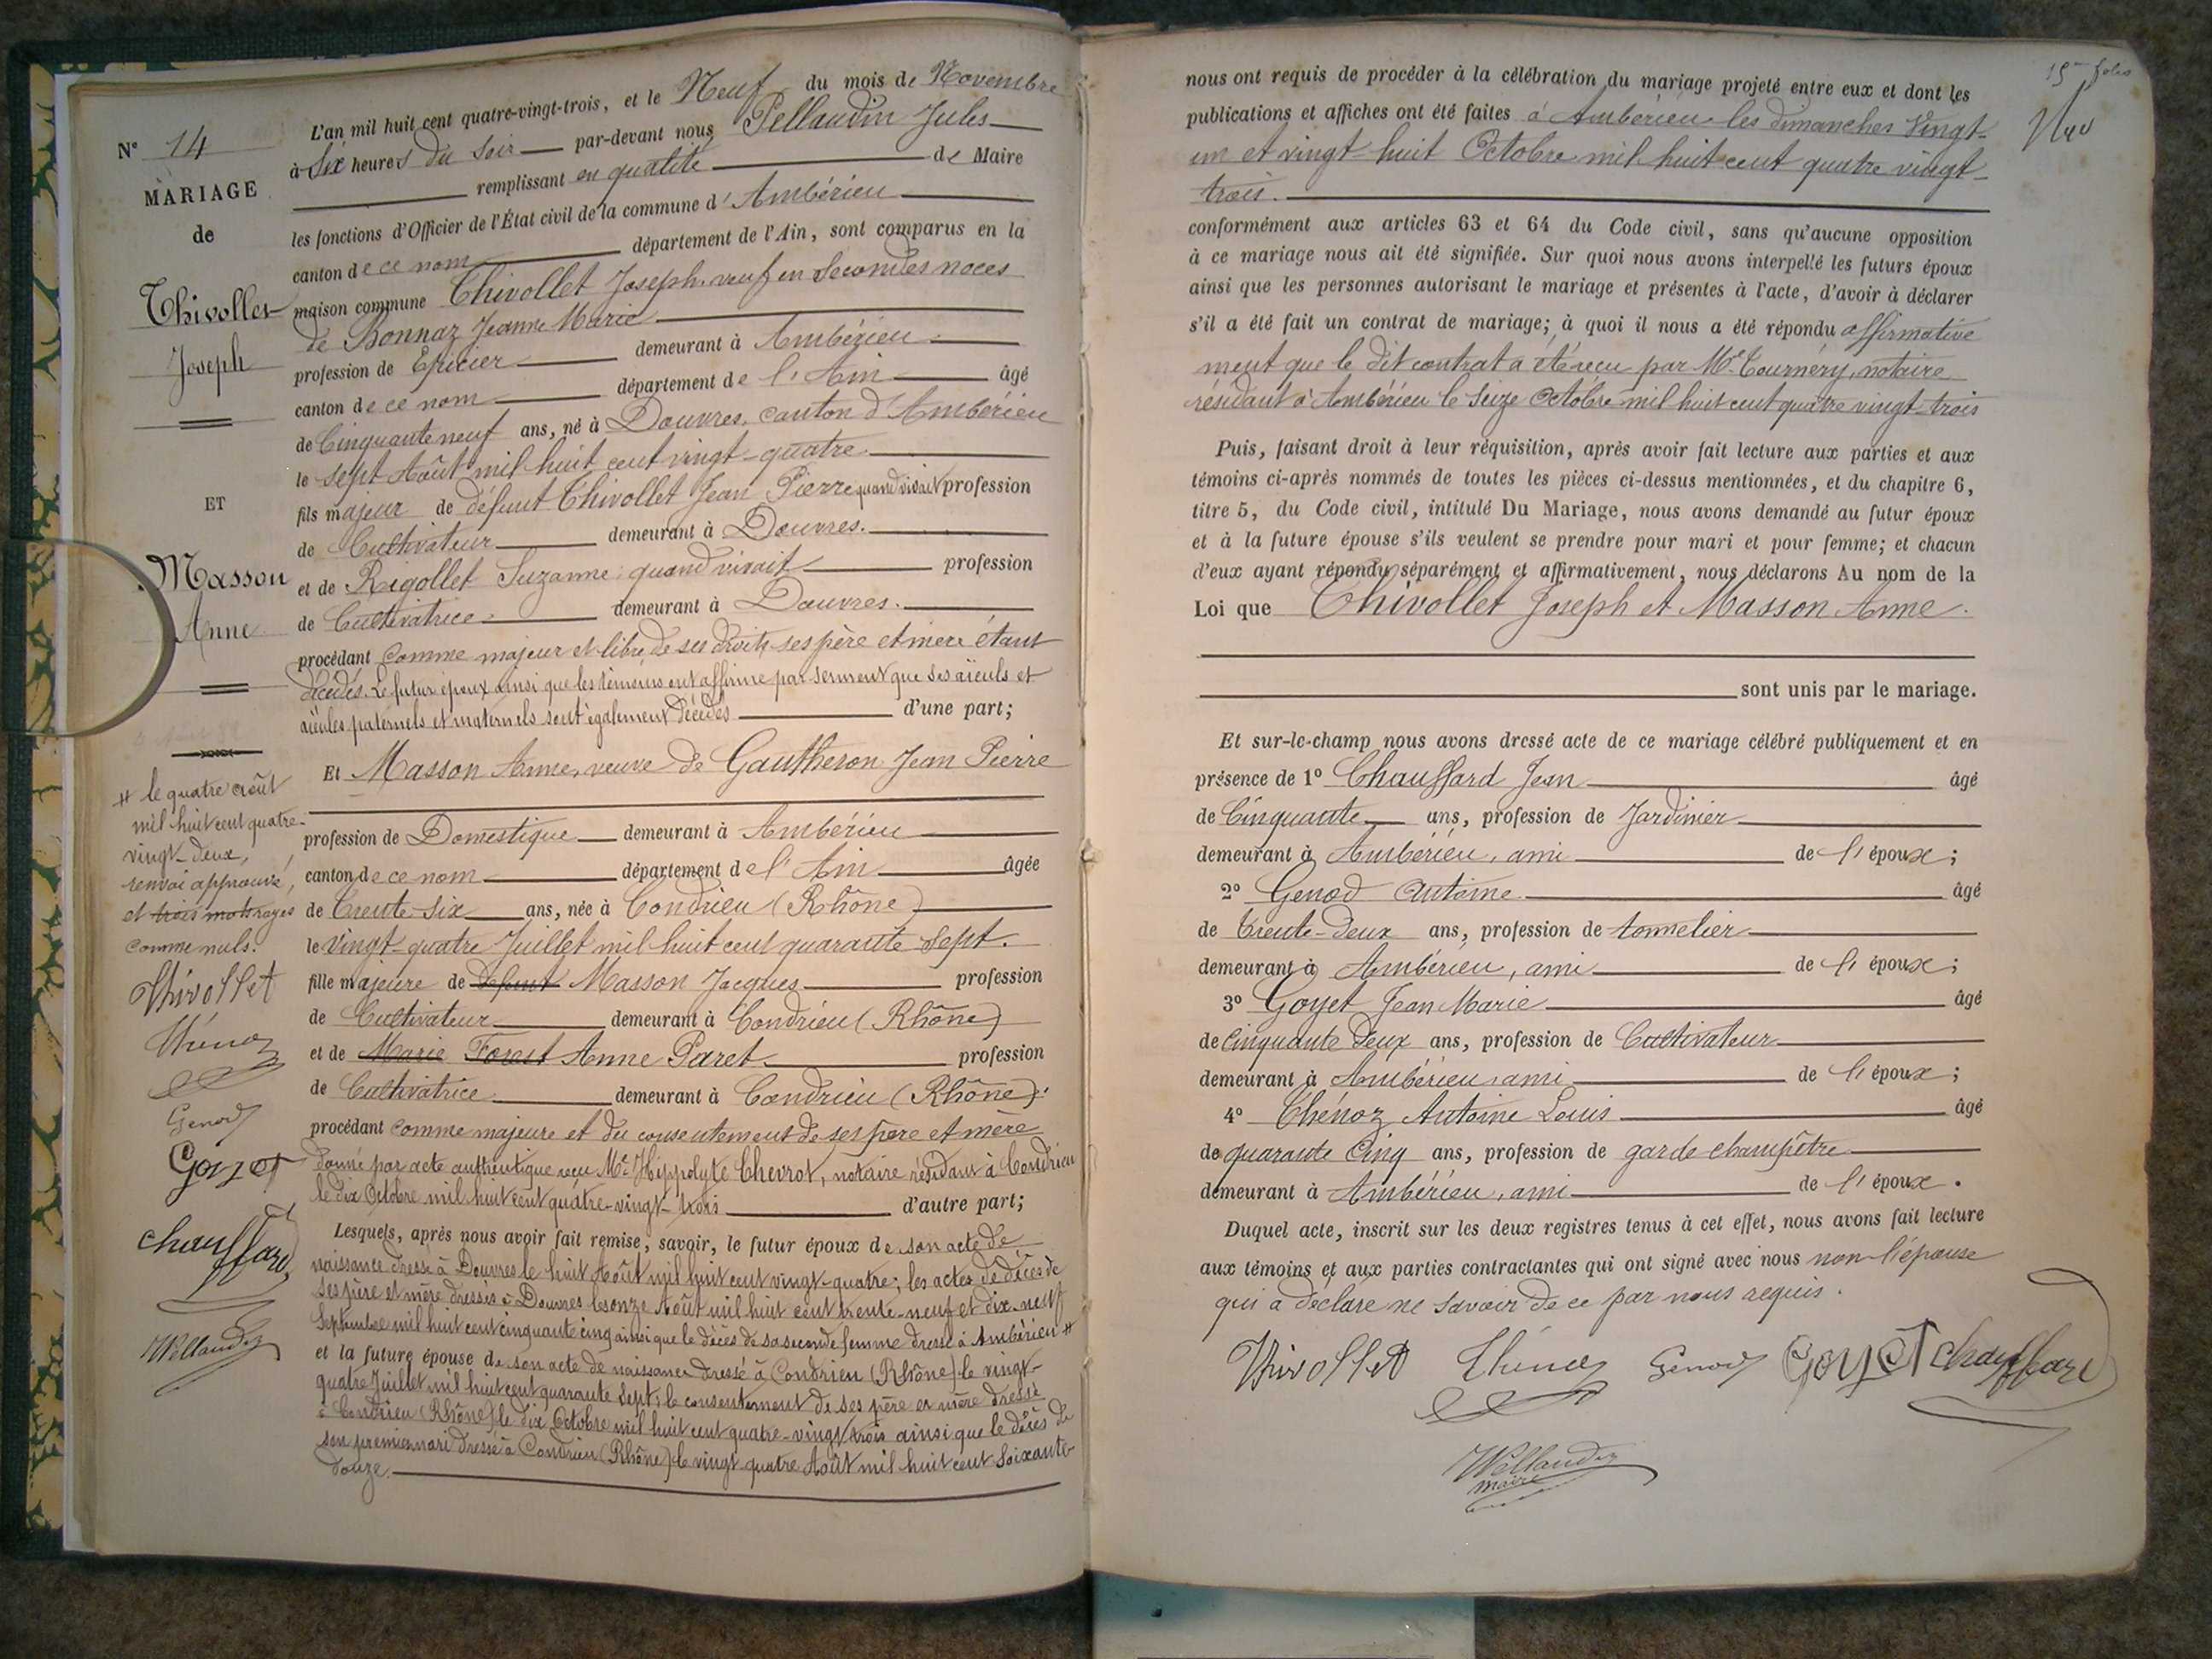 N° 14
MARIAGE
de
Thivollet
Joseph
ET
Masson
Anne
# le quatre août
mil huit cent quatre-
vingt-deux,
renvoi approuvé,
et trois mots rayés
comme nuls.
Thivollet
Thénoz
Genod
Goyet
Chauffard
L'an mil huit cent quatre-vingt-trois, et le Neuf du mois de Novembre
à Six heures du Soir par-devant nous Pellaudin Jules
remplissant en qualité de Maire
les fonctions d'Officier de l'État civil de la commune d'Ambérieu
canton de ce nom département de l'Ain, sont comparus en la
maison commune Thivollet Joseph, veuf en Secondes noces
de Bonnaz Jeanne Marie
profession de Epicier demeurant à Ambérieu
canton de ce nom département de l'Ain âgé
de Cinquante neuf ans, né à Douvres, canton d'Ambérieu
le sept Août mil huit cent vingt-quatre
fils majeur de défunt Thivollet Jean Pierre quand vivait profession
de Cultivateur demeurant à Douvres.
et de Rigollet Suzanne quand vivait profession
de Cultivatrice demeurant à Douvres.
procédant comme majeur et libre de ses droits, ses père et mère étant
décédés. Le futur époux ainsi que les témoins ont affirmé par serment que ses aïeuls et
aïeules paternels et maternels sont également décédés d'une part;
Et Masson Anne, veuve de Gautheron Jean Pierre
profession de Domestique demeurant à Ambérieu
canton de ce nom département de l'Ain âgée
de Trente-six ans, née à Condrieu (Rhône)
le vingt-quatre Juillet mil huit cent quarante-sept.
fille majeure de défunt Masson Jacques profession
de Cultivateur demeurant à Condrieu (Rhône)
et de Marie Forest Anne Paret profession
de Cultivatrice demeurant à Condrieu (Rhône).
procédant comme majeure et du consentement de ses père et mère
donné par acte authentique reçu Me Hippolyte Chevrot, notaire résidant à Condrieu
le dix Octobre mil huit cent quatre-vingt-trois d'autre part;
Lesquels, après nous avoir fait remise, savoir, le futur époux de son acte de
naissance dressé à Douvres le huit Août mil huit cent vingt-quatre; les actes de décès de
ses père et mère dressés à Douvres les onze Août mil huit cent trente-neuf et dix-neuf
Septembre mil huit cent cinquante cinq ainsi que le décès de sa seconde femme dressé à Ambérieu #
et la future épouse de son acte de naissance dressé à Condrieu (Rhône) le vingt-
quatre Juillet mil huit cent quarante sept; le consentement de ses père et mère dressé
à Condrieu (Rhône) le dix Octobre mil huit cent quatre-vingt trois ainsi que le décès de
son premier mari dressé à Condrieu (Rhône) le vingt quatre Août mil huit cent soixante-
douze.
nous ont requis de procéder à la célébration du mariage projeté entre eux et dont les
publications et affiches ont été faites à Ambérieu les dimanches vingt-
un et vingt-huit Octobre mil huit cent quatre vingt-
trois.
conformément aux articles 63 et 64 du Code civil, sans qu'aucune opposition
à ce mariage nous ait été signifiée. Sur quoi nous avons interpellé les futurs époux
ainsi que les personnes autorisant le mariage et présentes à l'acte, d'avoir à déclarer
s'il a été fait un contrat de mariage; à quoi il nous a été répondu affirmative
ment que le dit contrat a été reçu par Me Tournéry, notaire
résidant à Ambérieu le seize Octobre mil huit cent quatre vingt-trois
Puis, faisant droit à leur réquisition, après avoir fait lecture aux parties et aux
témoins ci-après nommés de toutes les pièces ci-dessus mentionnées, et du chapitre 6,
titre 5, du Code civil, intitulé Du Mariage, nous avons demandé au futur époux
et à la future épouse s'ils veulent se prendre pour mari et pour femme; et chacun
d'eux ayant répondu séparément et affirmativement, nous déclarons Au nom de la
Loi que Thivollet Joseph et Masson Anne.
sont unis par le mariage.
Et sur-le-champ nous avons dressé acte de ce mariage célébré publiquement et en
présence de 1° Chauffard Jean âgé
de Cinquante ans, profession de Jardinier
demeurant à Ambérieu, ami de l'époux;
2° Genod Antoine âgé
de Trente-deux ans, profession de tonnelier
demeurant à Ambérieu, ami de l'époux;
3° Goyet Jean Marie âgé
de cinquante deux ans, profession de Cultivateur
demeurant à Ambérieu, ami de l'époux;
4° Thénoz Antoine Louis âgé
de quarante cinq ans, profession de garde champêtre
demeurant à Ambérieu, ami de l'époux.
Duquel acte, inscrit sur les deux registres tenus à cet effet, nous avons fait lecture
aux témoins et aux parties contractantes qui ont signé avec nous non l'épouse
qui a déclaré ne savoir de ce par nous requis.
Thivollet Thénoz Genod Goyet Chauffard
maire